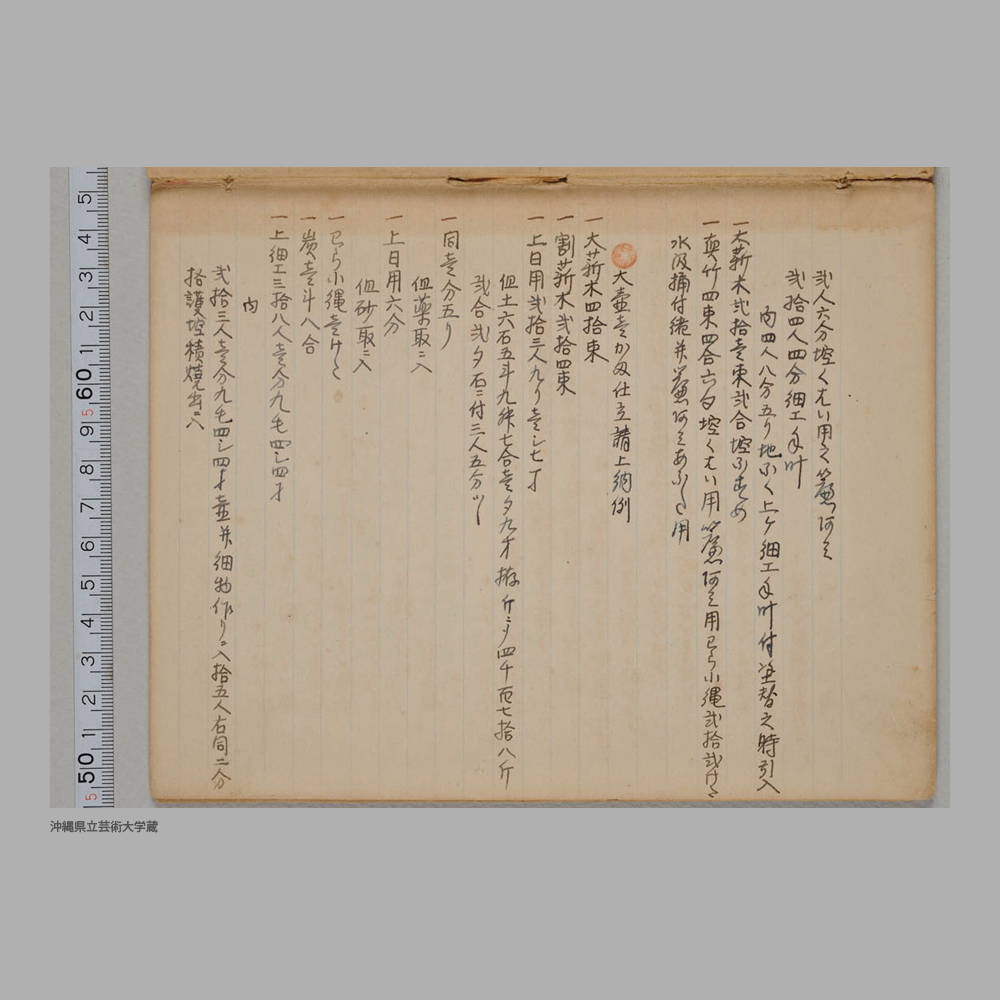 弐人六分垵くはい用之簾阿ミ
弐拾四人四分細工手叶
内四人八分五り地ふく上ケ細工手叶付塗替之時引入
一大薪木弐拾壱束弐合垵ふすめ
一真竹四束四合六夕垵くはい用簾阿ミ用わら小縄弐拾弐け
水汲桶付捲并簾阿ミあふた用
大壷壱か又仕立請上納例
一大薪木四拾束
一割薪木弐拾四束
一上日用弐拾三人九り壱シ七才
但土六石五斗九舛七合壱夕九才 斤ニ〆四千百七拾八斤
弐合弐夕石ニ付三人五分ツヽ
一同壱分五り
但薬取ニ入
一上日用六分
但砂取ニ入
一わら小縄壱け
一炭壱斗八合
一上細工三拾八人壱分九毛四シ四才
内
弐拾三人壱分九毛四シ四才壷并細物作リニ入拾五人右同ニ分
拾護垵積焼出ニ入
5 4 3 2 1 60 9 8 7 6 5 4 3 2 1 50
沖縄県立芸術大学蔵